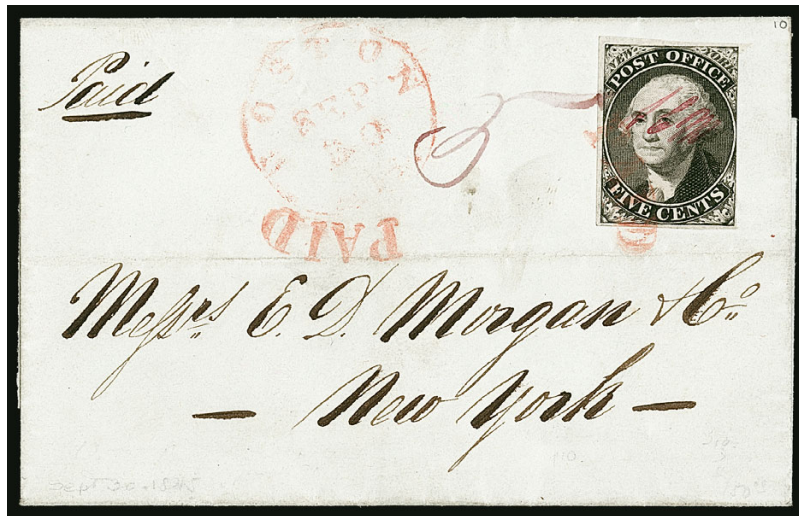 10
Paid
BOSTON
SEP
PAID
5
POST OFFICE
FIVE CENTS
Messrs E. D. Morgan & Co
— New York —
Sept 30 1845